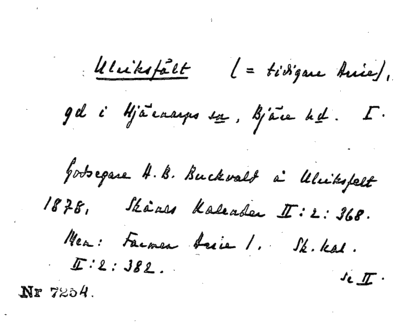 Ulriksfält (= tidigare Arrie),
gd i Hjärnarps sn, Bjäre hd. I.
Godsegare H. B. Buckvald å Ulriksfelt
1878, Skånes Kalender II:2:368.
Men: Farmen Arrie 1. Sk. kal.
II:2:382.
se II.
Nr 7254.